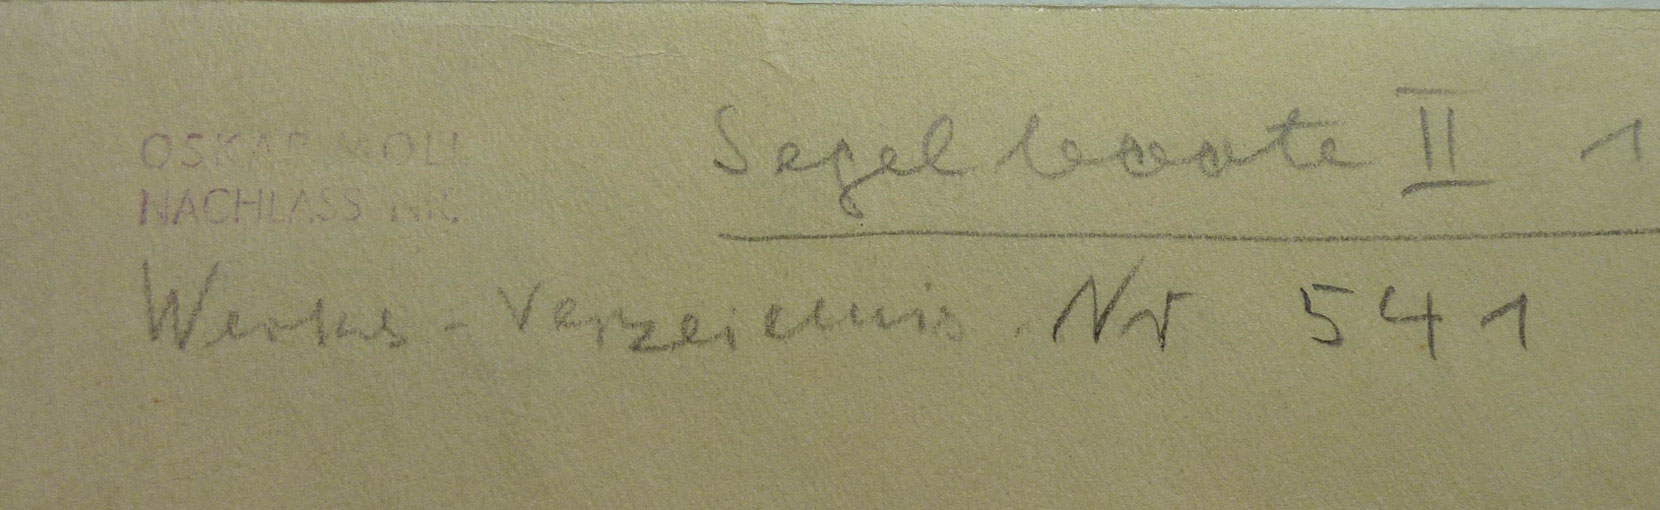 OSKAR MOLL
NACHLASS NR.
Segelboote II 1
Werks-Verzeichnis Nr 541